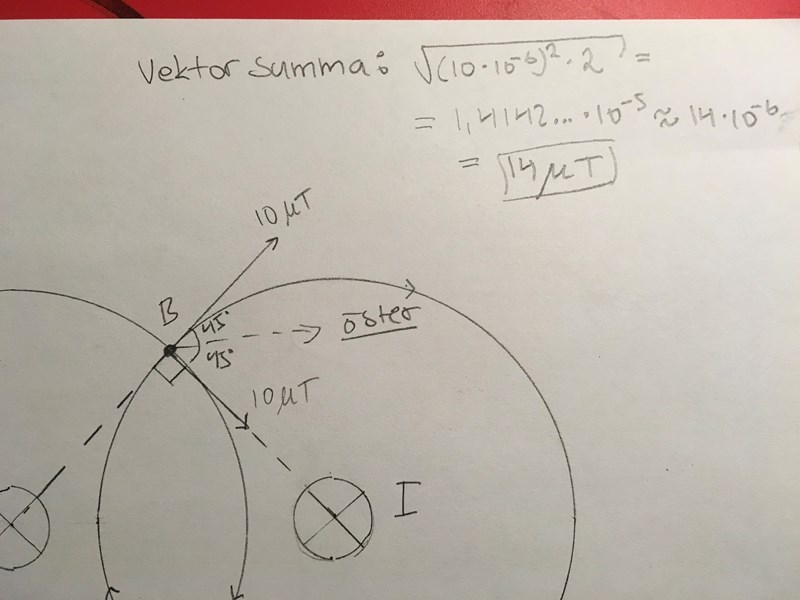 Vektor summa: √(10·10⁻⁶)²·2 =
= 1,4142...·10⁻⁵ ≈ 14·10⁻⁶
= 14 μT
10 μT
B
45°
45°
öster
10 μT
I